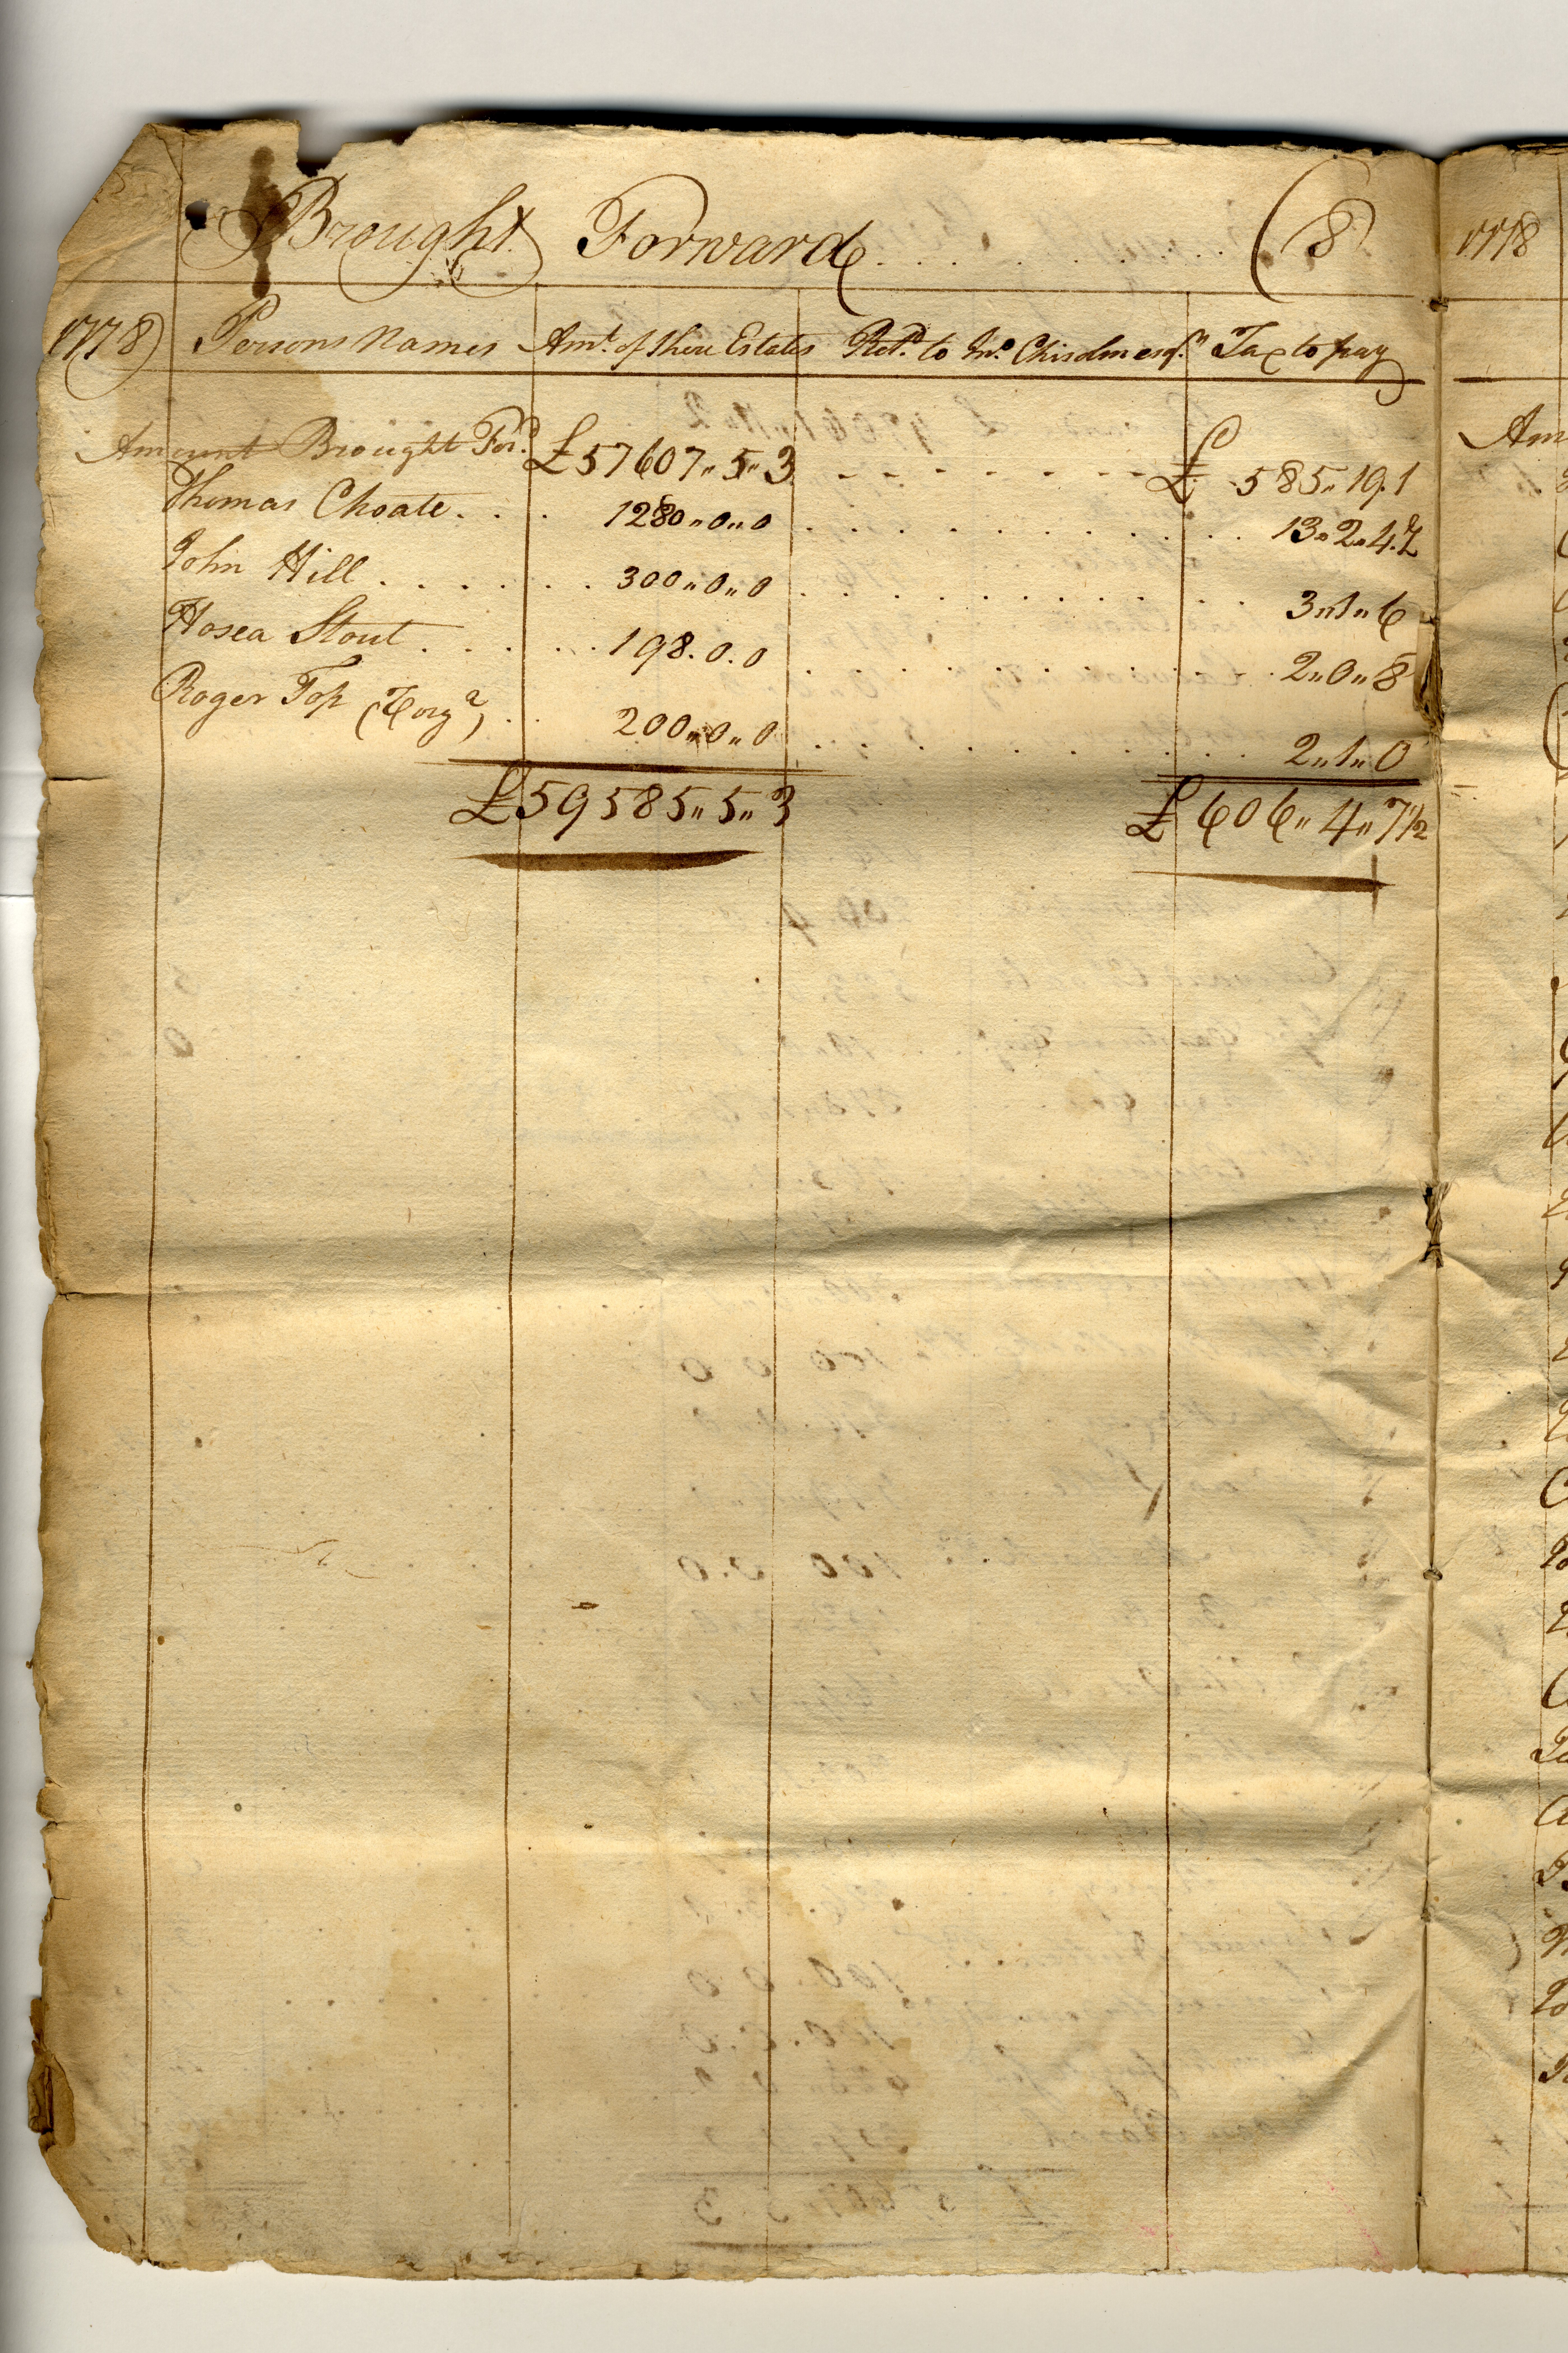 Brought Forward . . . . . . . . . (8)
1778) Persons Names Amt. of there Estates Retd. to Jno. Chisolm esqr. Tax to pay
Amount Brought Ford. £57607"5"3 - - - - - - - £ 585"19.1
Thomas Choate . . . 1280"0"0 . . . . . . . . . 13"2"4.½
John Hill . . . . . . . 300"0"0 . . . . . . . . . . 3"1"6
Hosea Stout . . . . . . 198.0.0 . . . . . . . . . . 2"0"8
Roger Top (Tory?) . . 200"0"0 . . . . . . . . . 2"1"0
£59585"5"3 £ 606"4"7½
1778
Am